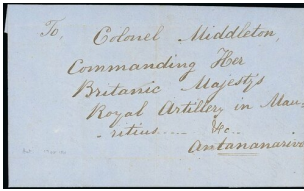 To,
Colonel Middleton,
Commanding Her
Britanic Majestys
Royal Artillery in Mau-
-ritius..... &c..
Antananarivo